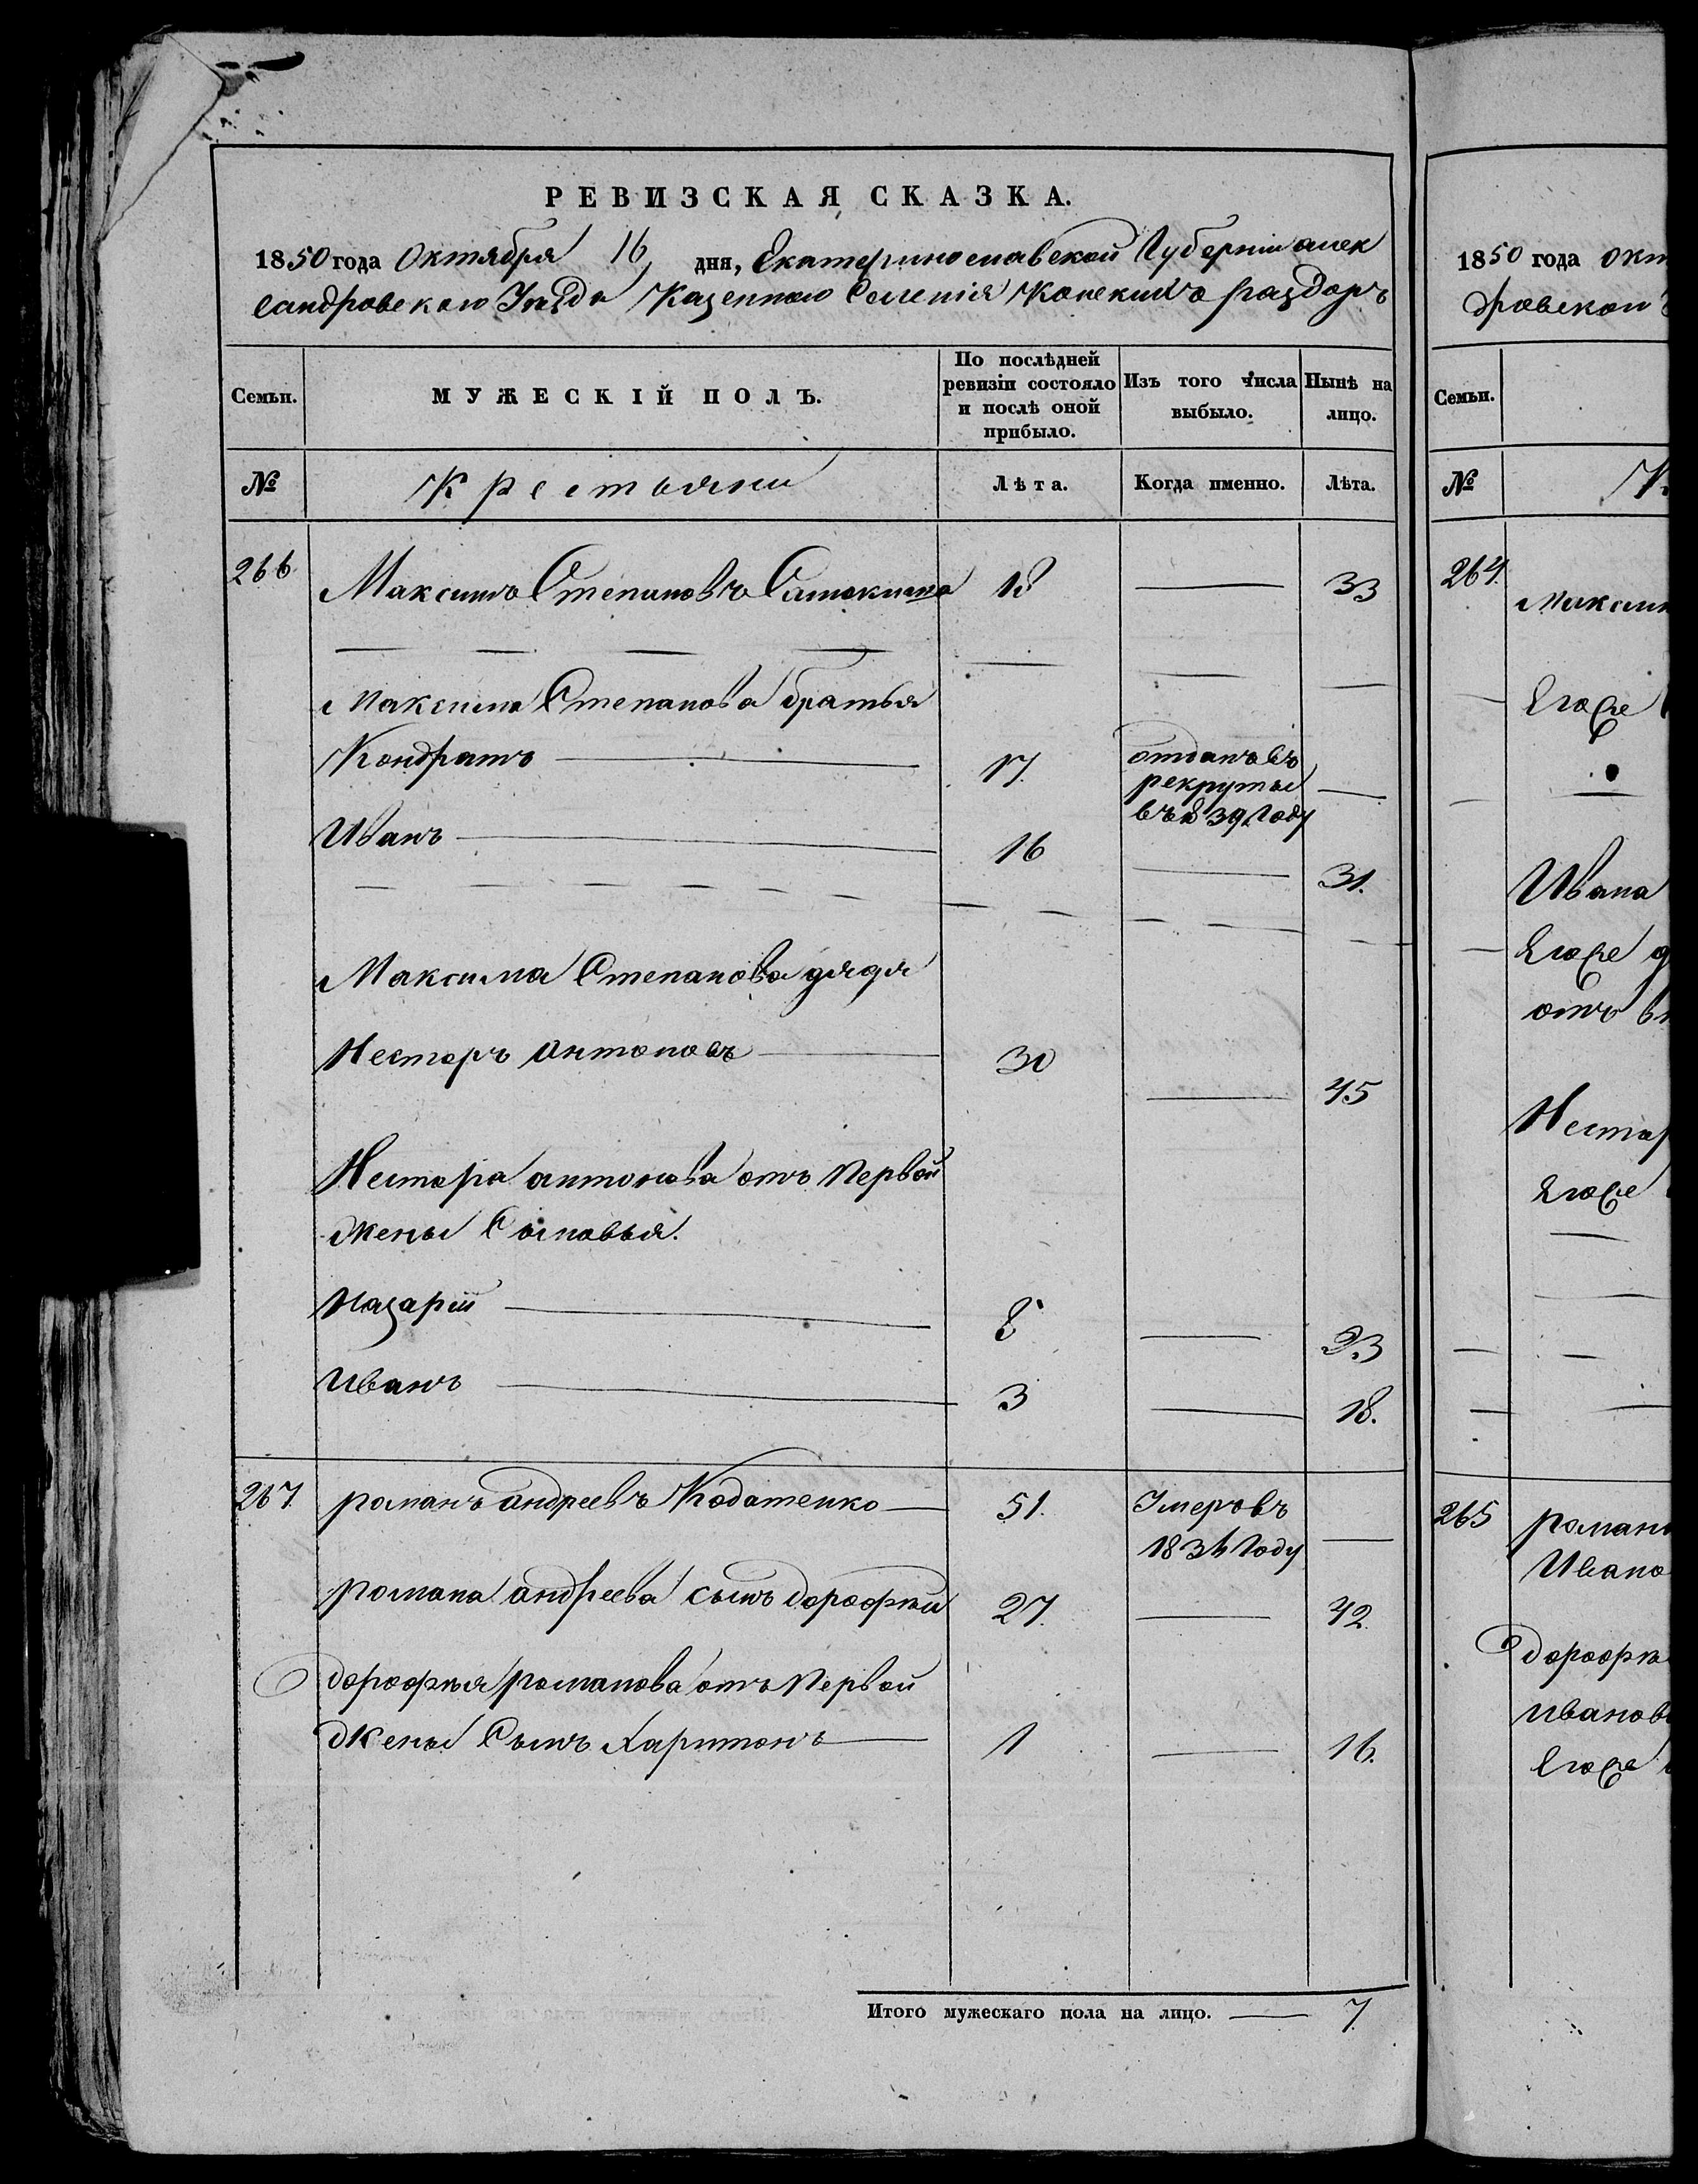 РЕВИЗСКАЯ СКАЗКА.
1850 года Октября 16 дня, Екатеринославской Губерніи алек
сандровского Уѣзда Казенного Селенія Конскихъ раздоръ
Семьи.
МУЖЕСКІЙ ПОЛЪ.
По послѣдней ревизіи состояло и послѣ оной прибыло.
Изъ того числа выбыло.
Нынѣ на лицо.
№ Крестьяни Лѣта. Когда именно. Лѣта.
266 Максимъ Степановъ 18 — 33
Максима Степанова братья
Кондратъ — 17. отданъ въ
рекруты —
въ 839 году
Иванъ — 16 — 31.
Максима Степанова дядя
Несторъ Антоновъ — 30 — 45
Нестора антонова отъ Первой
жены Сыновья.
Назарій — 8 — 23
Иванъ — 3 — 18.
267 романъ андреевъ — 51. Умеръ въ
183 году —
романа андреева сынъ дорофѣй 27. — 42.
дорофѣя романова отъ Первой
жены Сынъ Харитонъ — 1 — 16.
Итого мужескаго пола на лицо. — 7.
1850 года окт
дровской
Семьи.
№ К
264 Максим
Егоже
Ивана
Егоже д
отъ в
Нестор
Егоже
265 роман
Ивано
дорофѣ
Иванов
Егоже